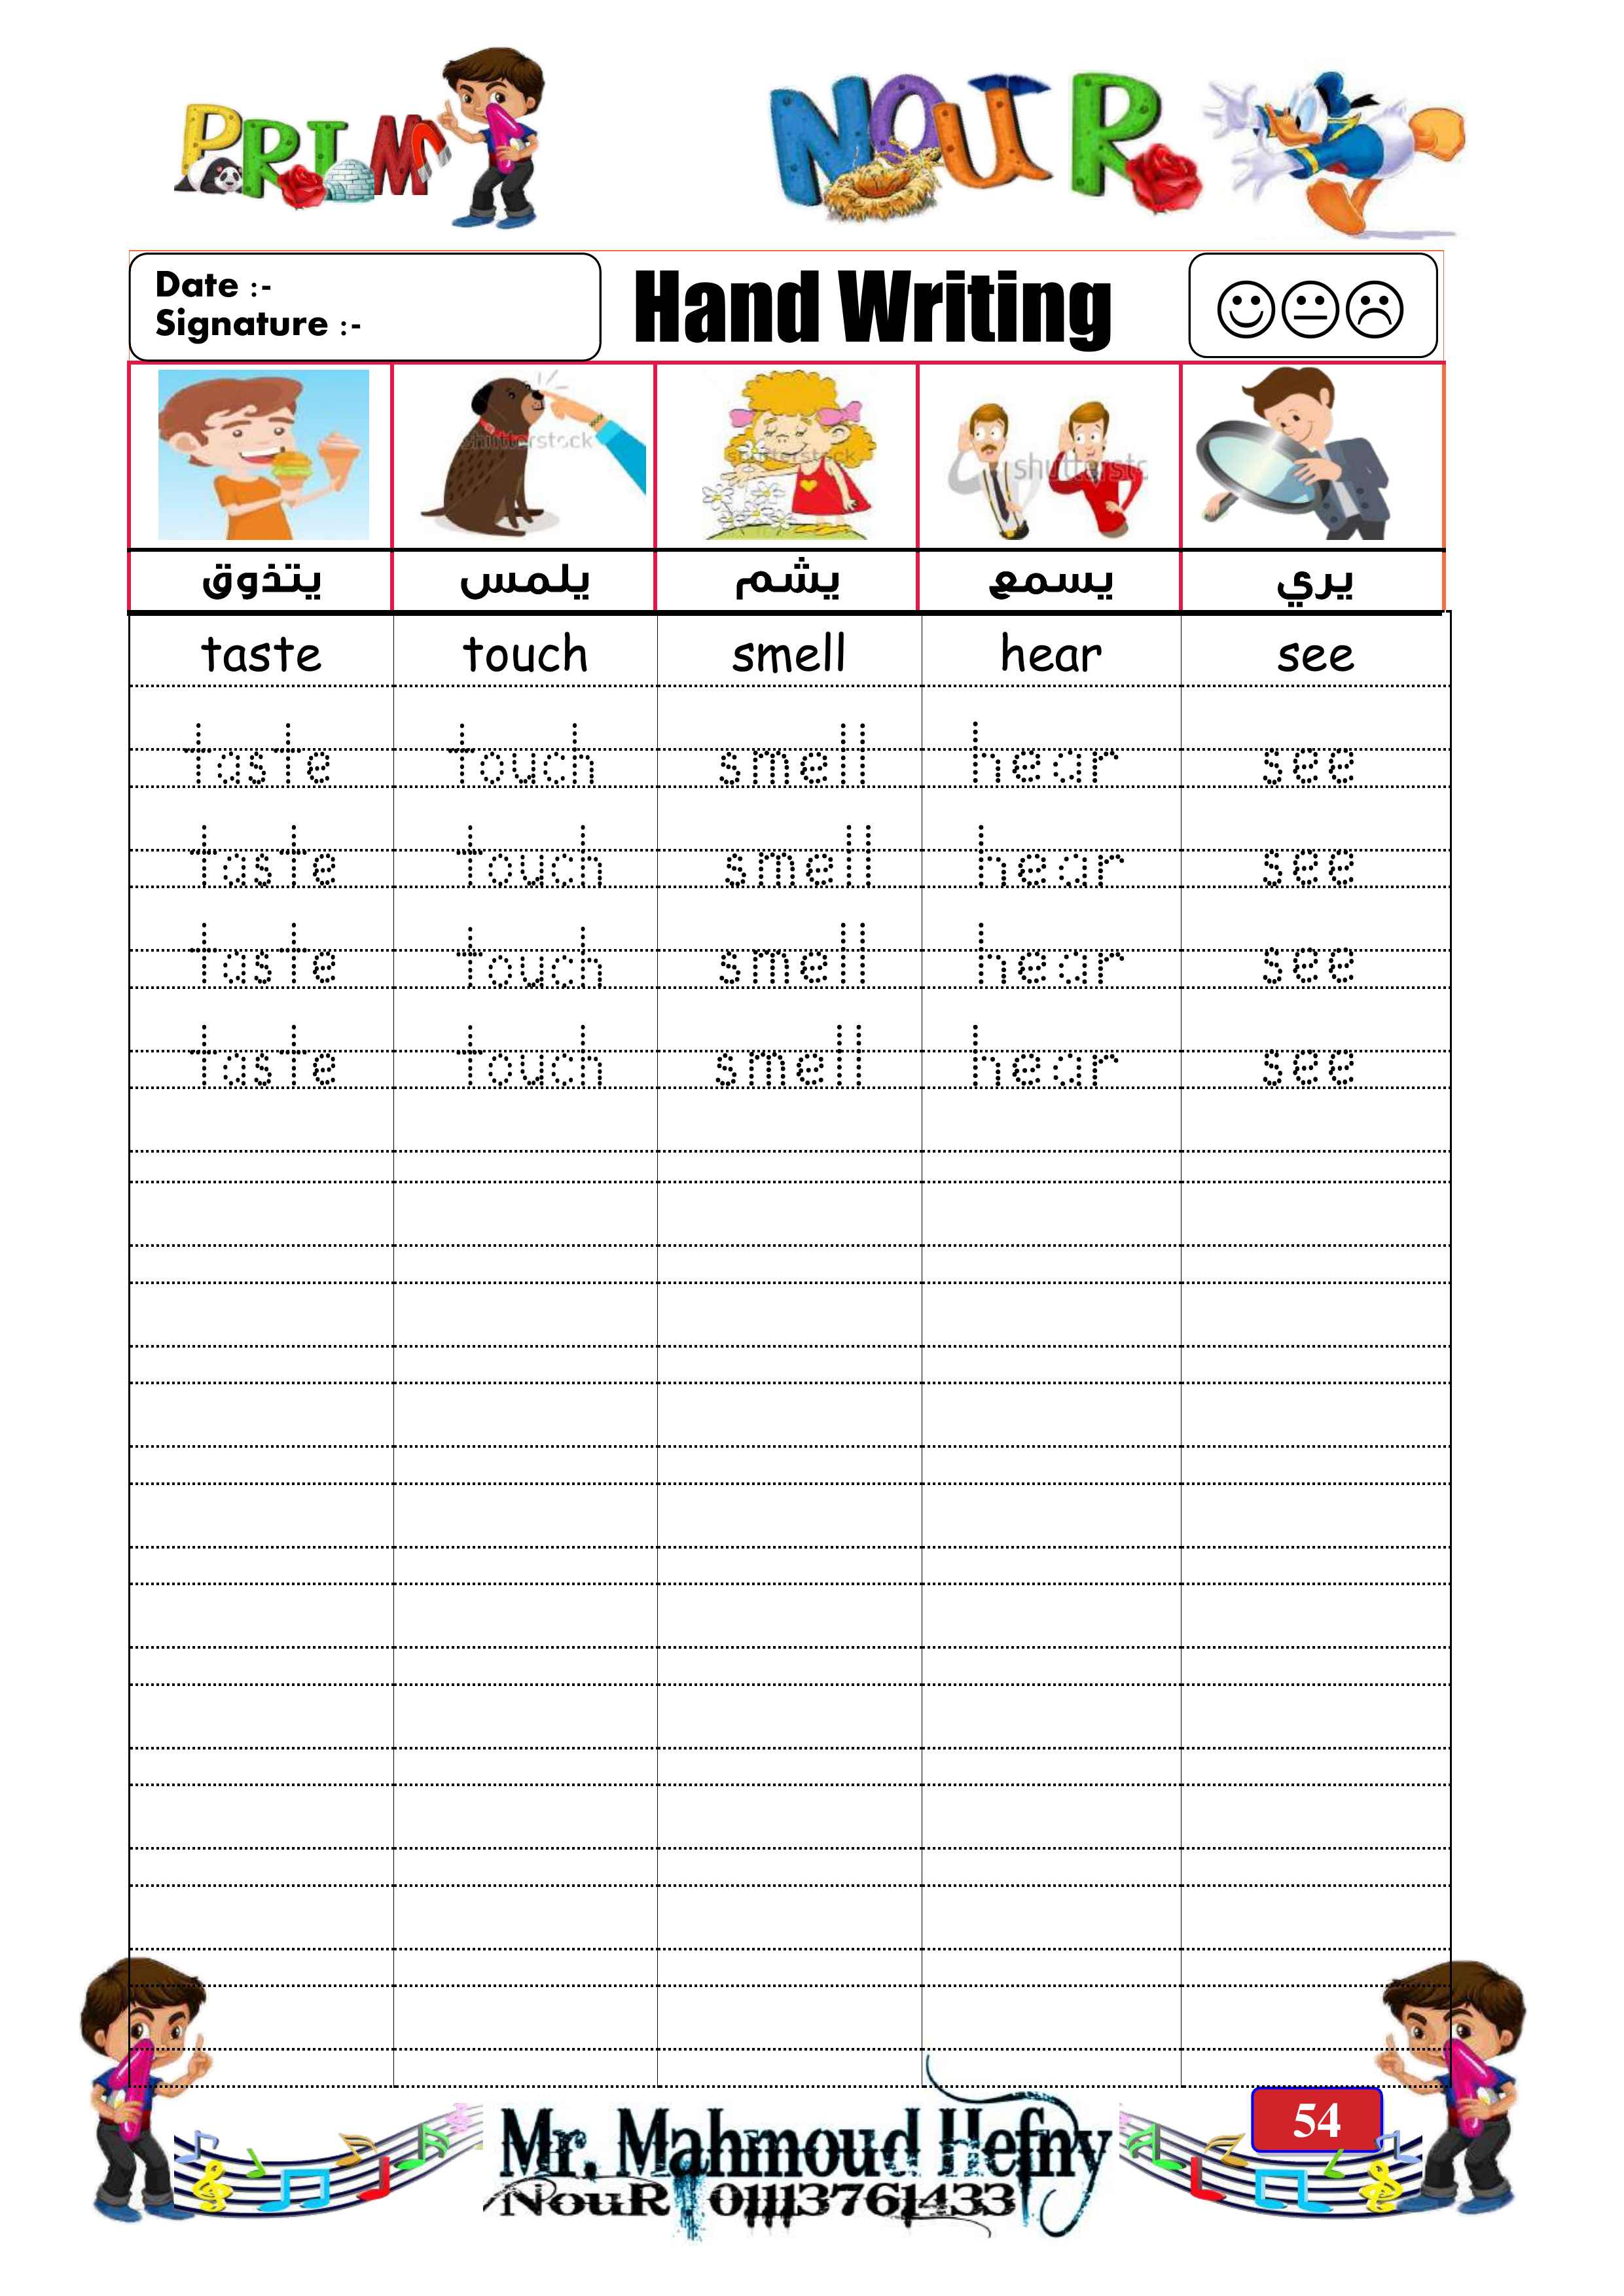 PRIM 1 NOUR
Date :-
Signature :-
Hand Writing
shutterstock shutterstock shutterstc
يتذوق يلمس يشم يسمع يري
taste touch smell hear see
taste touch smell hear see
taste touch smell hear see
taste touch smell hear see
taste touch smell hear see
54
Mr. Mahmoud Hefny
NouR : 01113761433